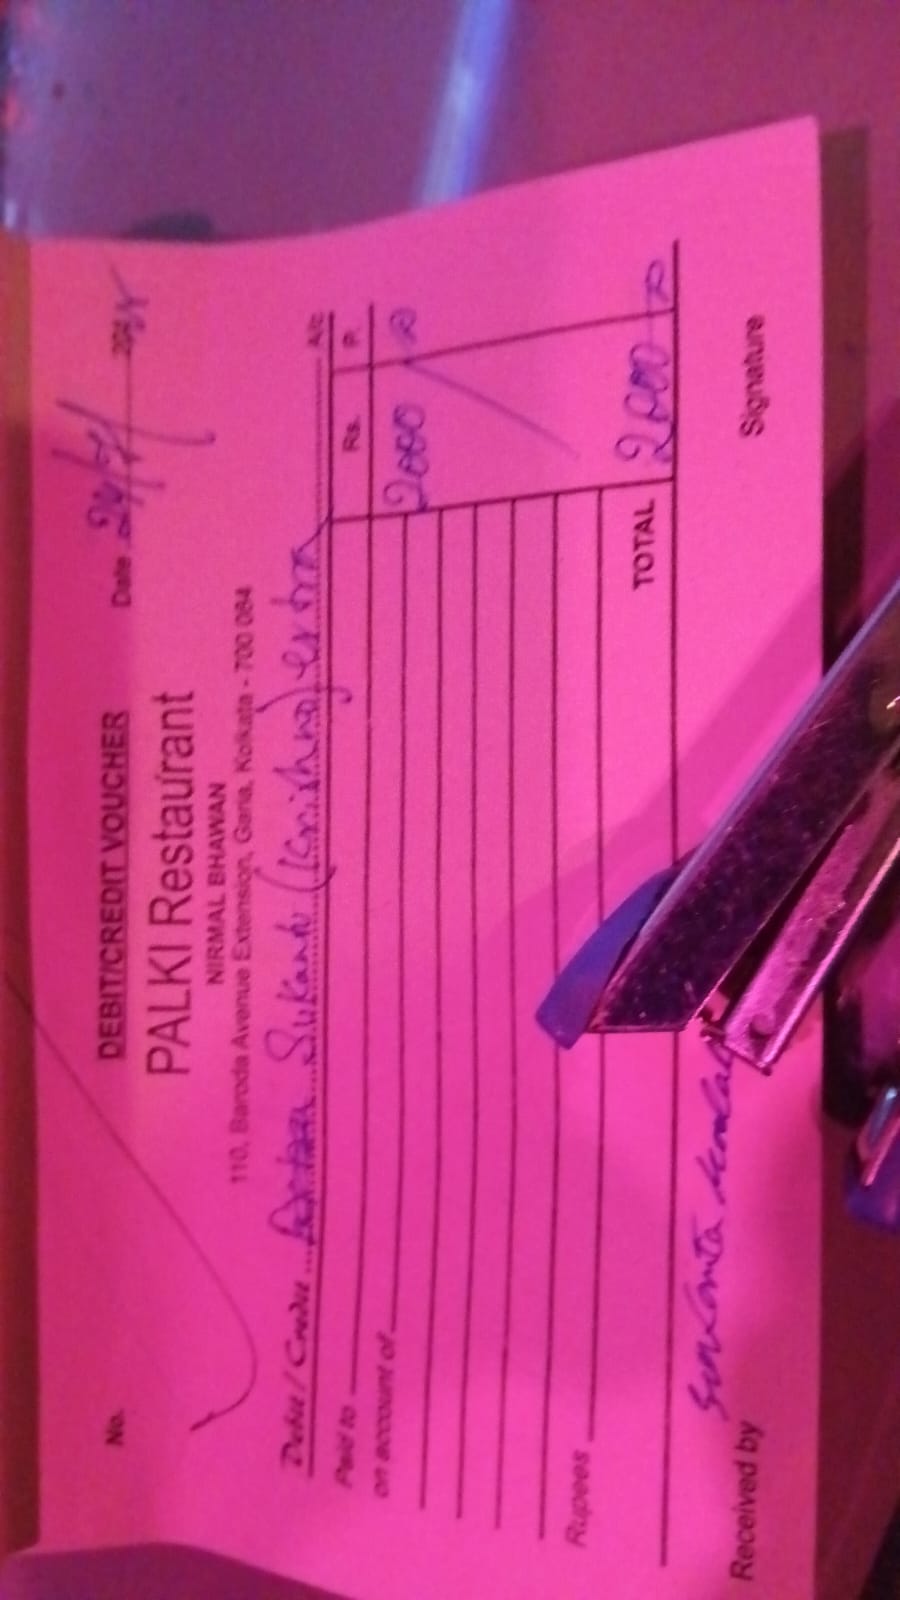 No.
DEBIT/CREDIT VOUCHER
Date 24/7/
PALKI Restaurant
NIRMAL BHAWAN
110, Baroda Avenue Extension, Garia, Kolkata - 700 084
Debit / Credit Sukanta (Krishna) extra A/c
Paid to Rs. P.
on account of 2000
Rupees
TOTAL 2000
Received by Sukanta
Signature